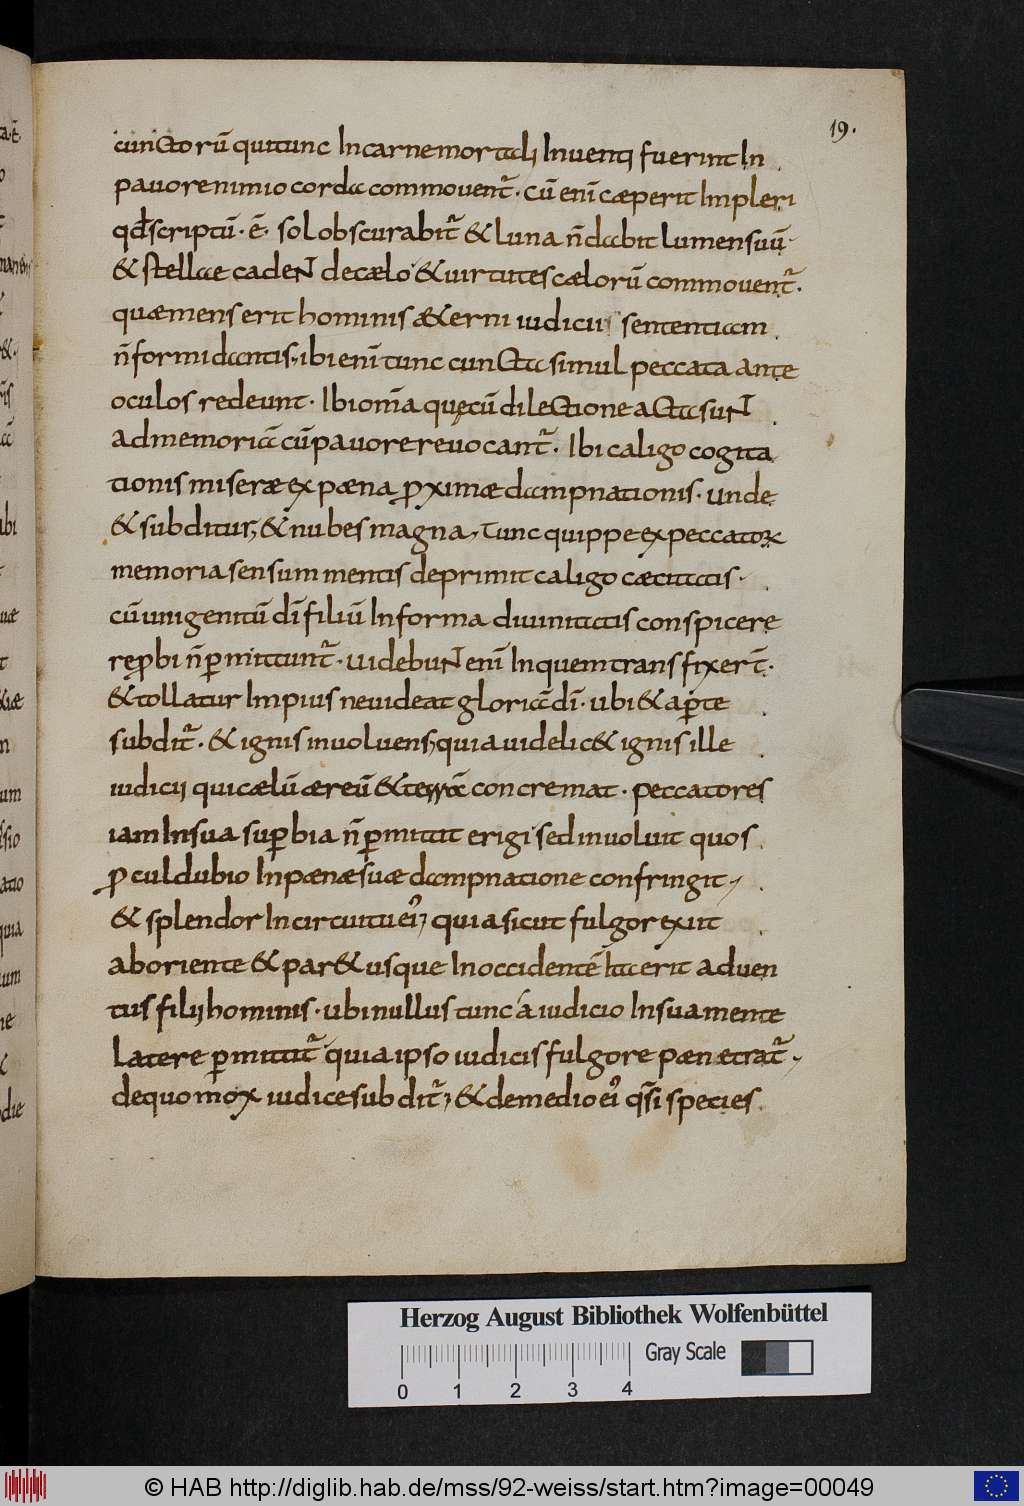 19.
cunctorū qui tunc In carne mortali Inventi fuerint In
pavore nimio corda commoventr̄. cū enī cæperit Impleri
qd̄ scriptū. ē. sol obscurabitr̄ & luna n̄ dabit lumen suū.
& stellae cadent de cælo & virtutes cælorū commoventr̄.
quæ mens erit hominis æterni iudicii sententiam
n̄ formidantis, ibi enī tunc cuncta simul peccata ante
oculos redeunt. Ibi om̄a quęcū dilectione acta sunt
ad memoriā cū pavore revocantr̄. Ibi caligo cogita
tionis miseræ ex pæna ꝓximæ dampnationis. unde
& subditur, & nubes magna, Tunc quippe ex peccatoꝝ
memoria sensum mentis deprimit caligo cæcitatis.
cū unigenitū dī filiū In forma divinitatis conspicere
reꝓbi n̄ ꝑmittuntr̄. videbunt enī In quem transfixer̄.
& tollatur Impius ne videat gloriā dī. ubi & aꝑte
subditr̄. & ignis involvens, quia videlic& ignis ille
iudicii qui cælū æreū & terrā concremat. peccatores
iam In sua suꝑbia n̄ ꝑmittit erigi sed involvit quos
ꝓculdubio In pænæ suæ dampnatione confringit,
& splendor In circuitu ei᾽, quia sicut fulgor exiit
ab oriente & par& usque In occidentē Ita erit adven
tus filii hominis. ubi nullus tunc á iudicio In sua mente
latere ꝑmittitr̄ quia ipso iudicis fulgore pænetratr̄,
de quo mox iudice subditr̄, & de medio ei᾽ q̄si species
Herzog August Bibliothek Wolfenbüttel
Gray Scale
0 1 2 3 4
© HAB http://diglib.hab.de/mss/92-weiss/start.htm?image=00049